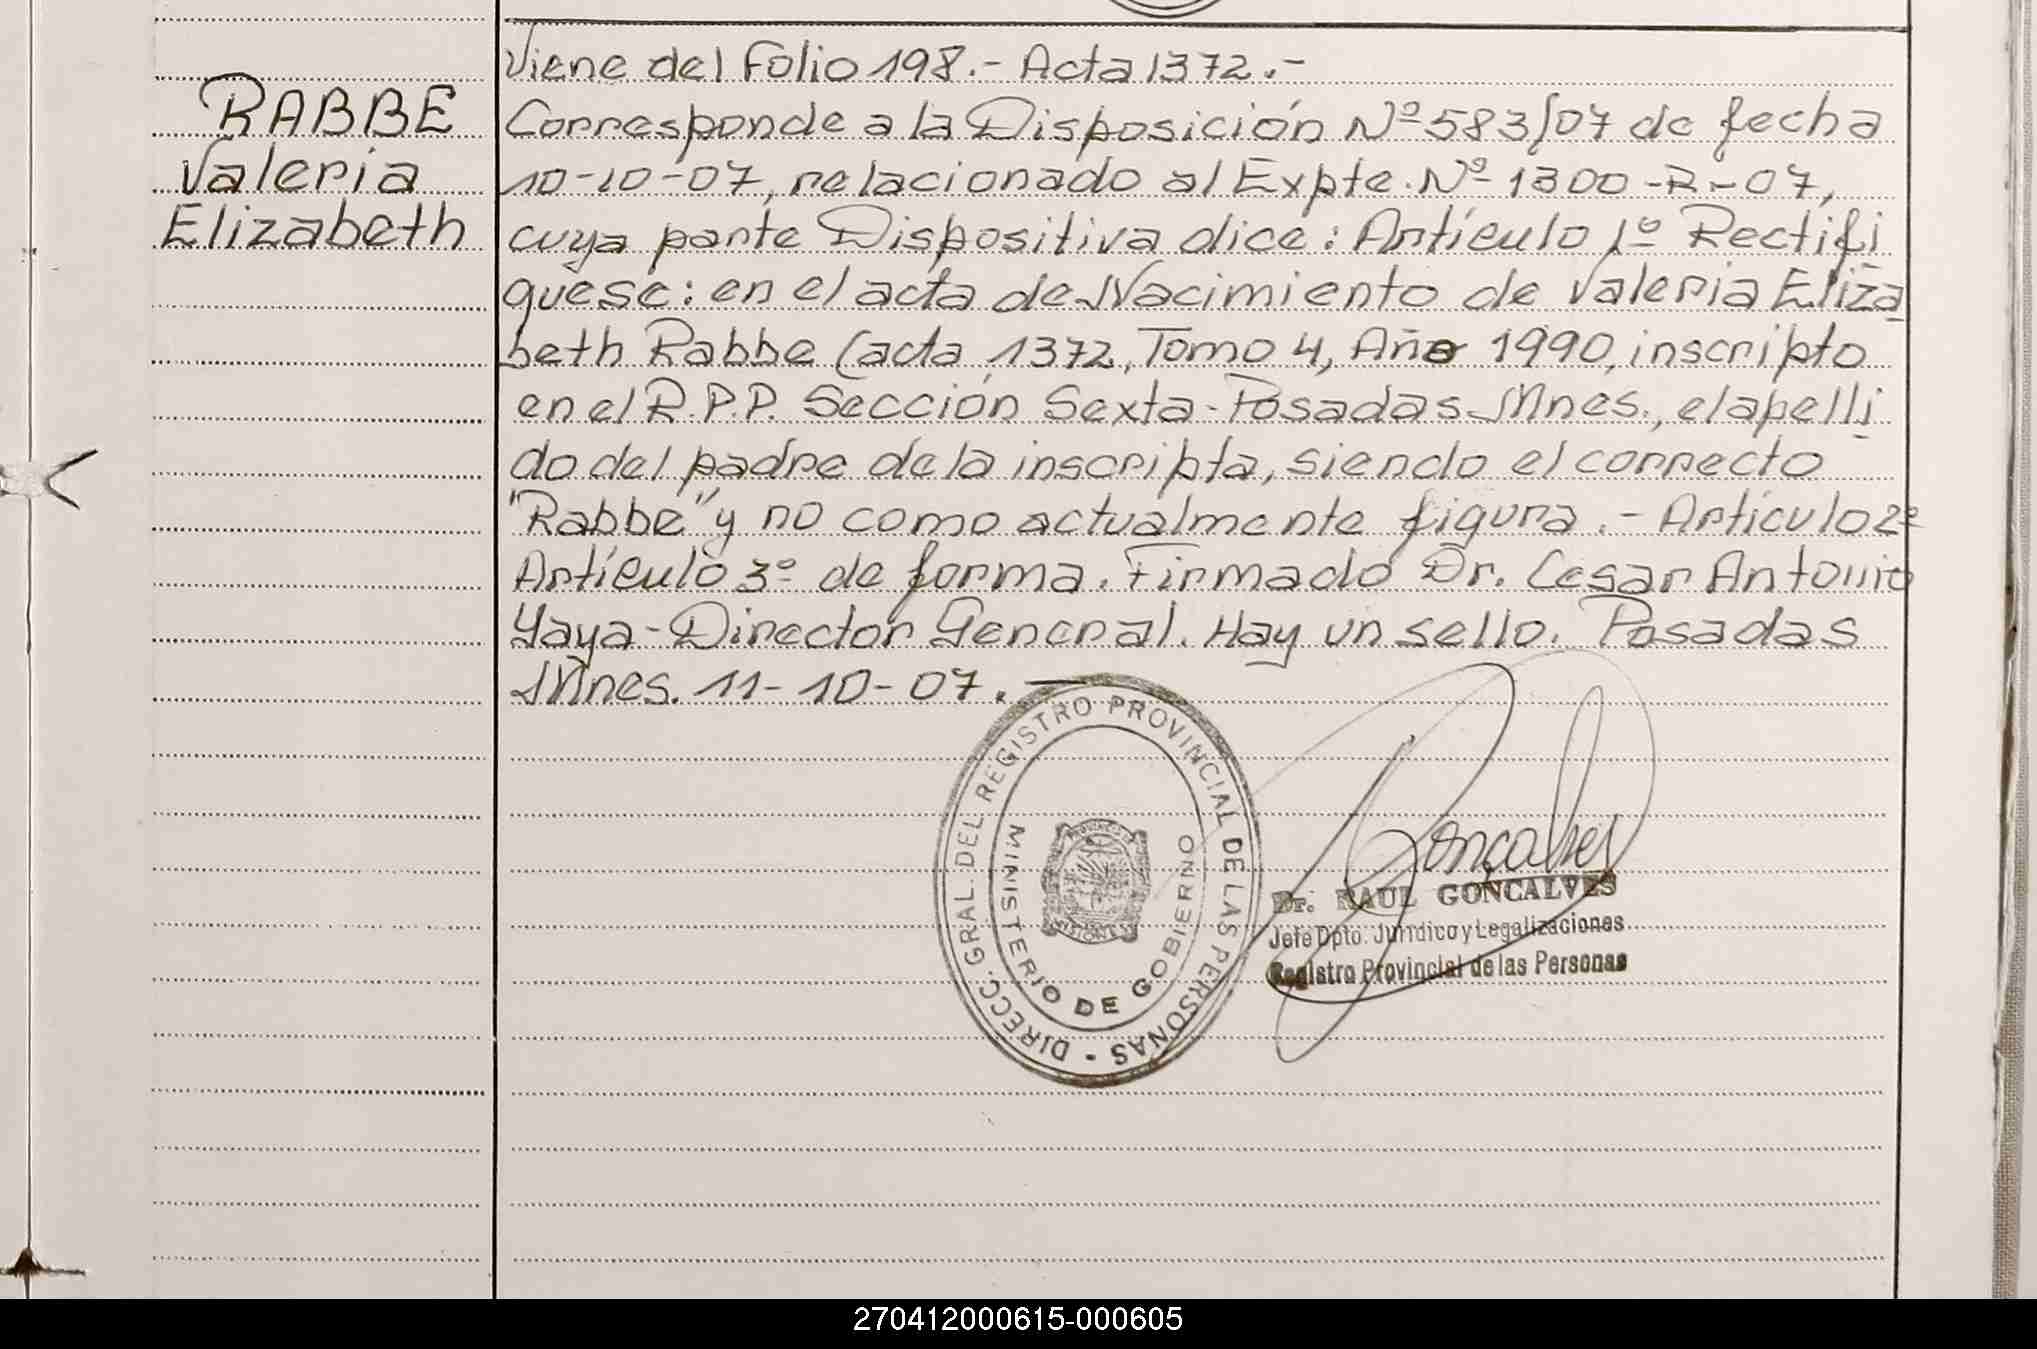 RABBE
Valeria
Elizabeth
Viene del Folio 198.- Acta 1372.-
Corresponde a la Disposición Nº 583/07 de fecha
10-10-07, relacionado al Expte. Nº 1300-R-07,
cuya parte Dispositiva dice: Artículo 1º Rectifi
quese: en el acta de Nacimiento de Valeria Eliza
beth Rabbe (acta 1372, Tomo 4, Año 1990, inscripto
en el R.P.P. Sección Sexta-Posadas Mnes., el apelli
do del padre de la inscripta, siendo el correcto
"Rabbe" y no como actualmente figura.- Artículo 2º
Artículo 3º de forma. Firmado Dr. Cesar Antonio
Yaya-Director General. Hay un sello. Posadas
Mnes. 11-10-07.-
DIRECC. GRAL. DEL REGISTRO PROVINCIAL DE LAS PERSONAS -
MINISTERIO DE GOBIERNO
PROVINCIA
MISIONES
Gonçalves
Dr. RAUL GONCALVES
Jefe Dpto. Jurídico y Legalizaciones
Registro Provincial de las Personas
270412000615-000605